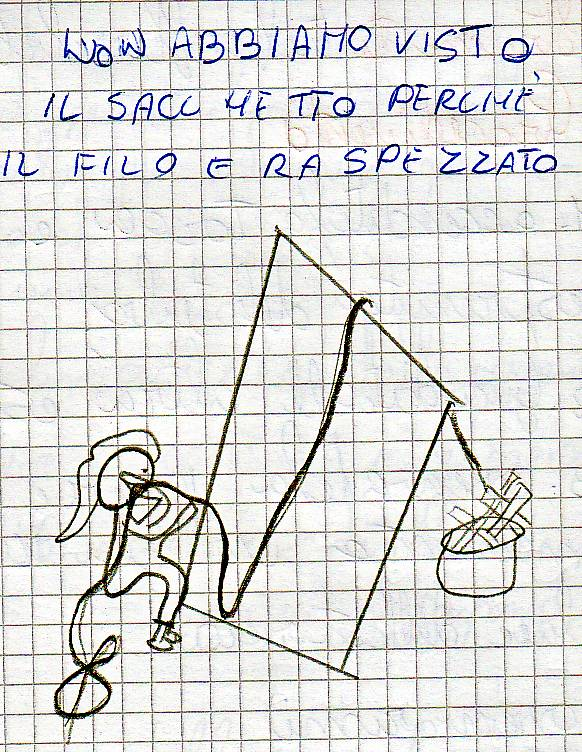 NON ABBIAMO VISTO
IL SACCHETTO PERCHÈ
IL FILO ERA SPEZZATO